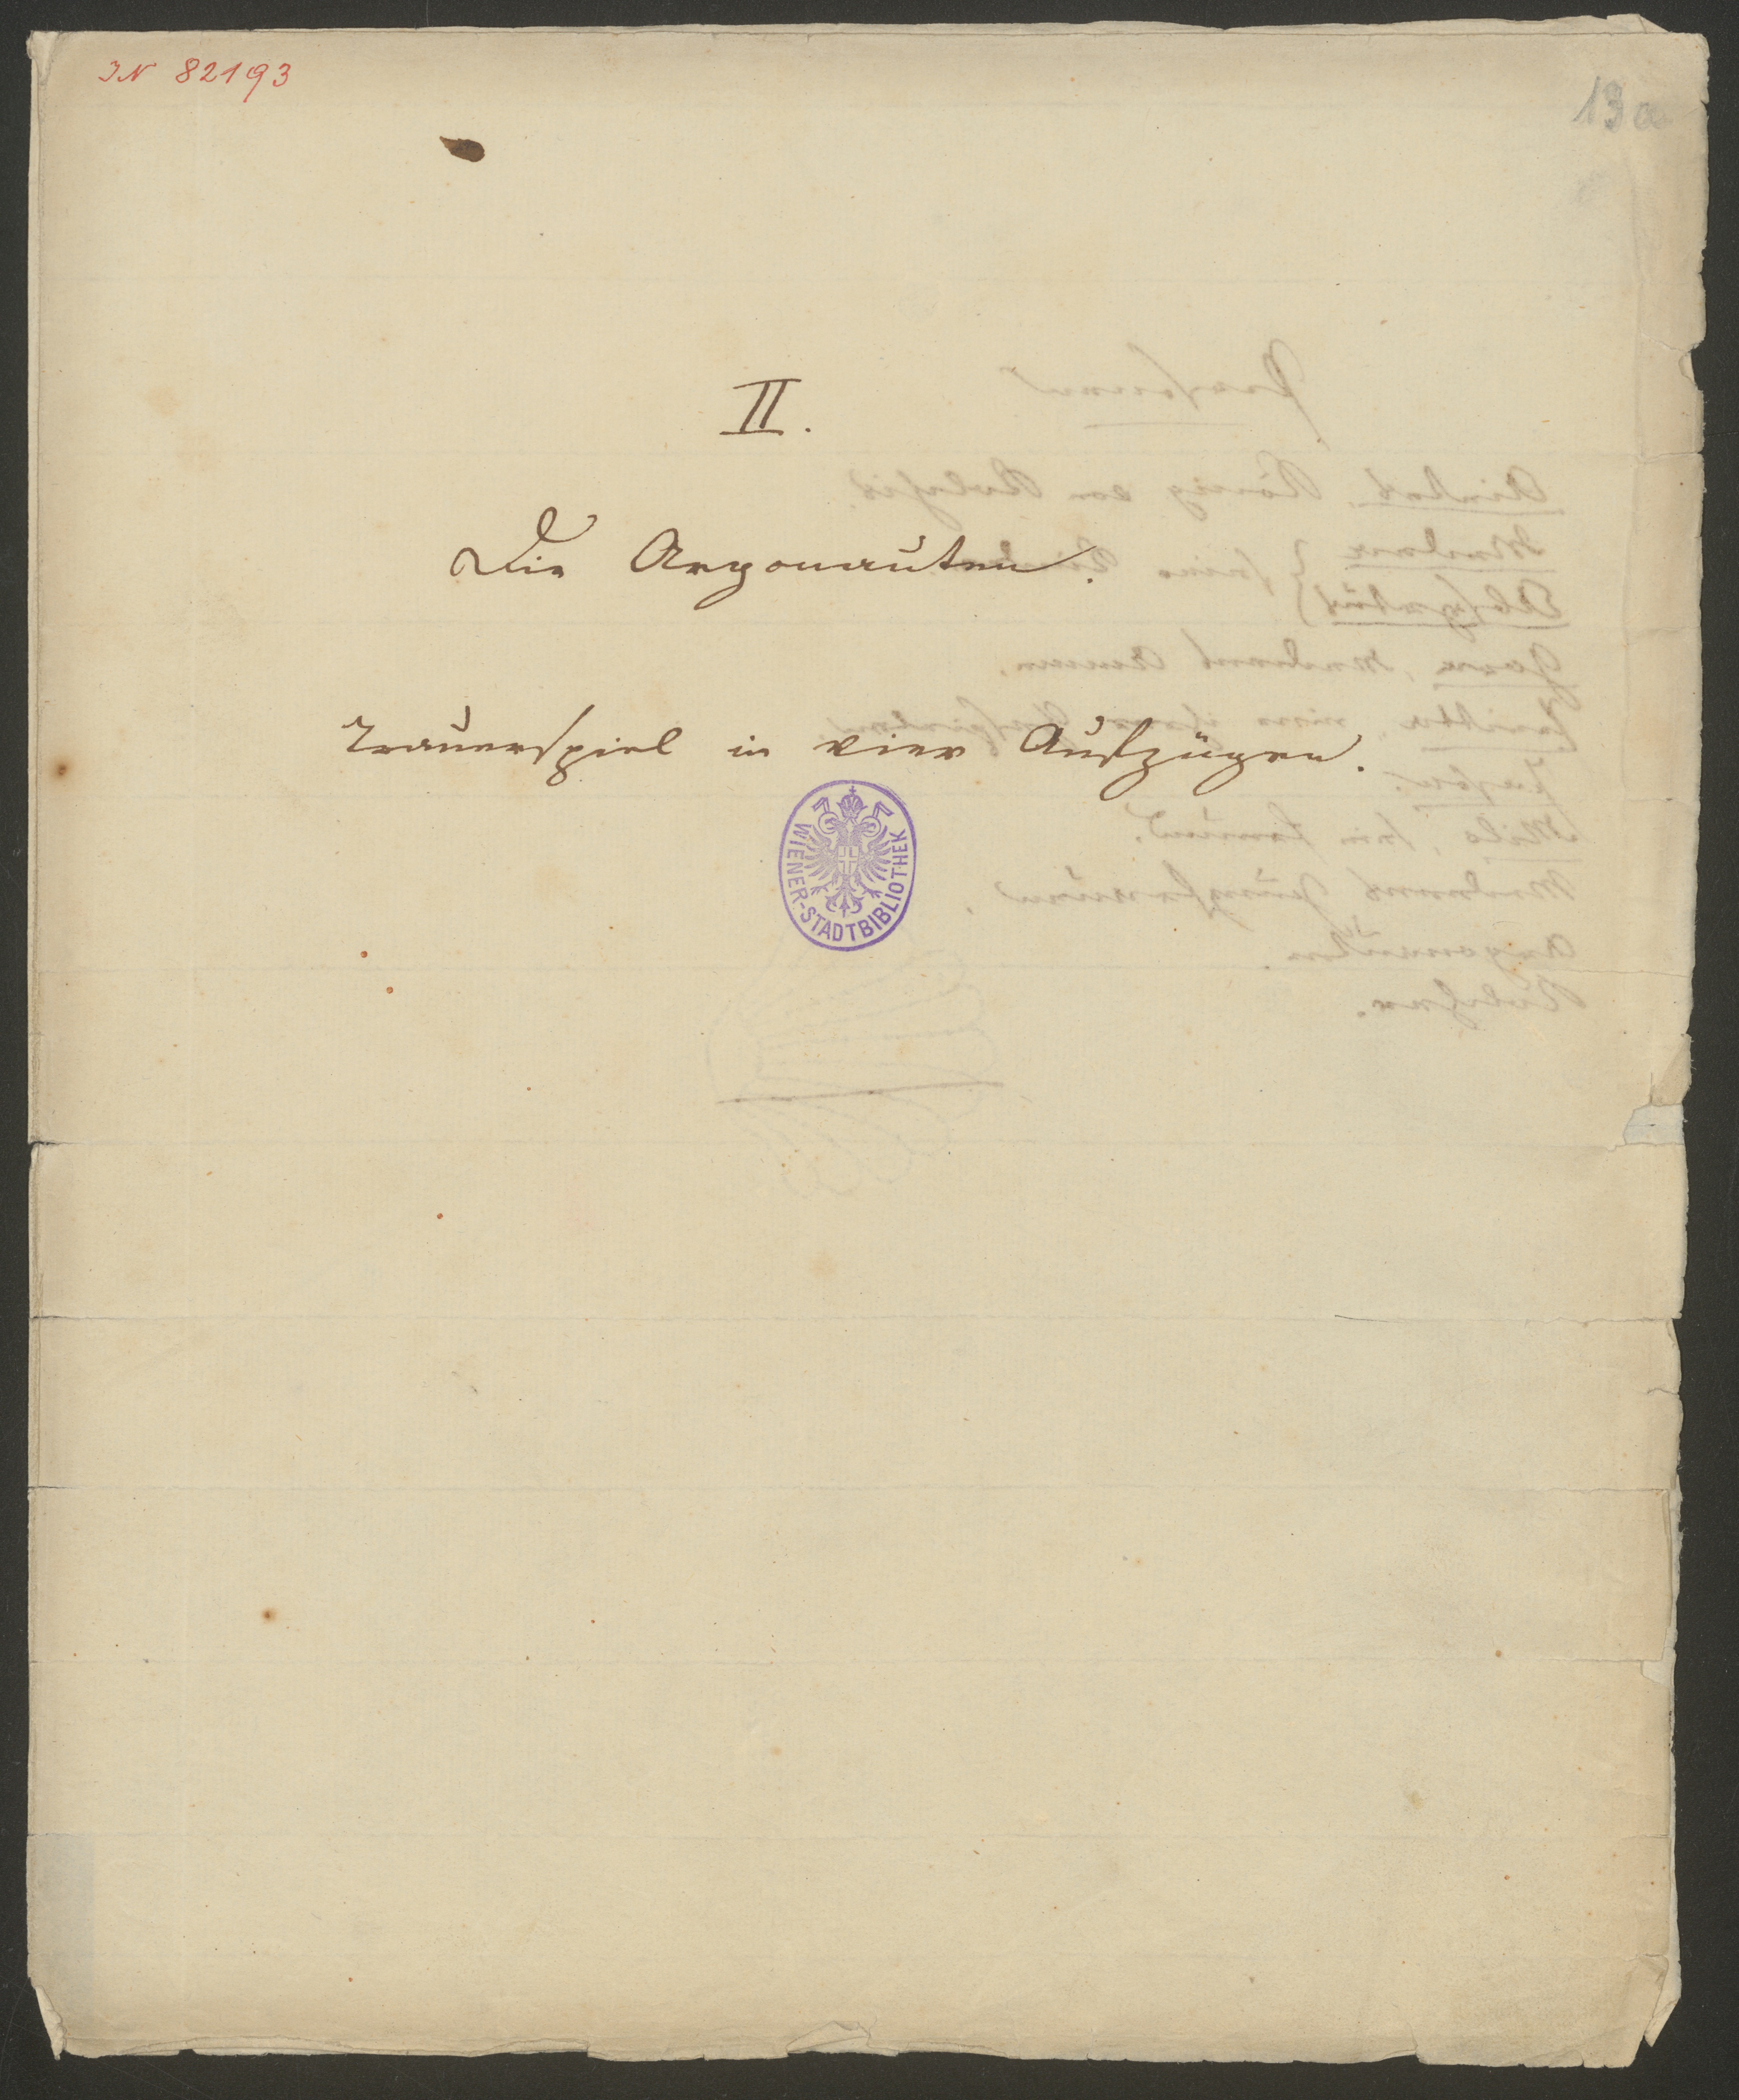 IN 82193
13a
II.
Die Argonauten.
Trauerspiel in vier Aufzügen.
WIENER-STADTBIBLIOTHEK